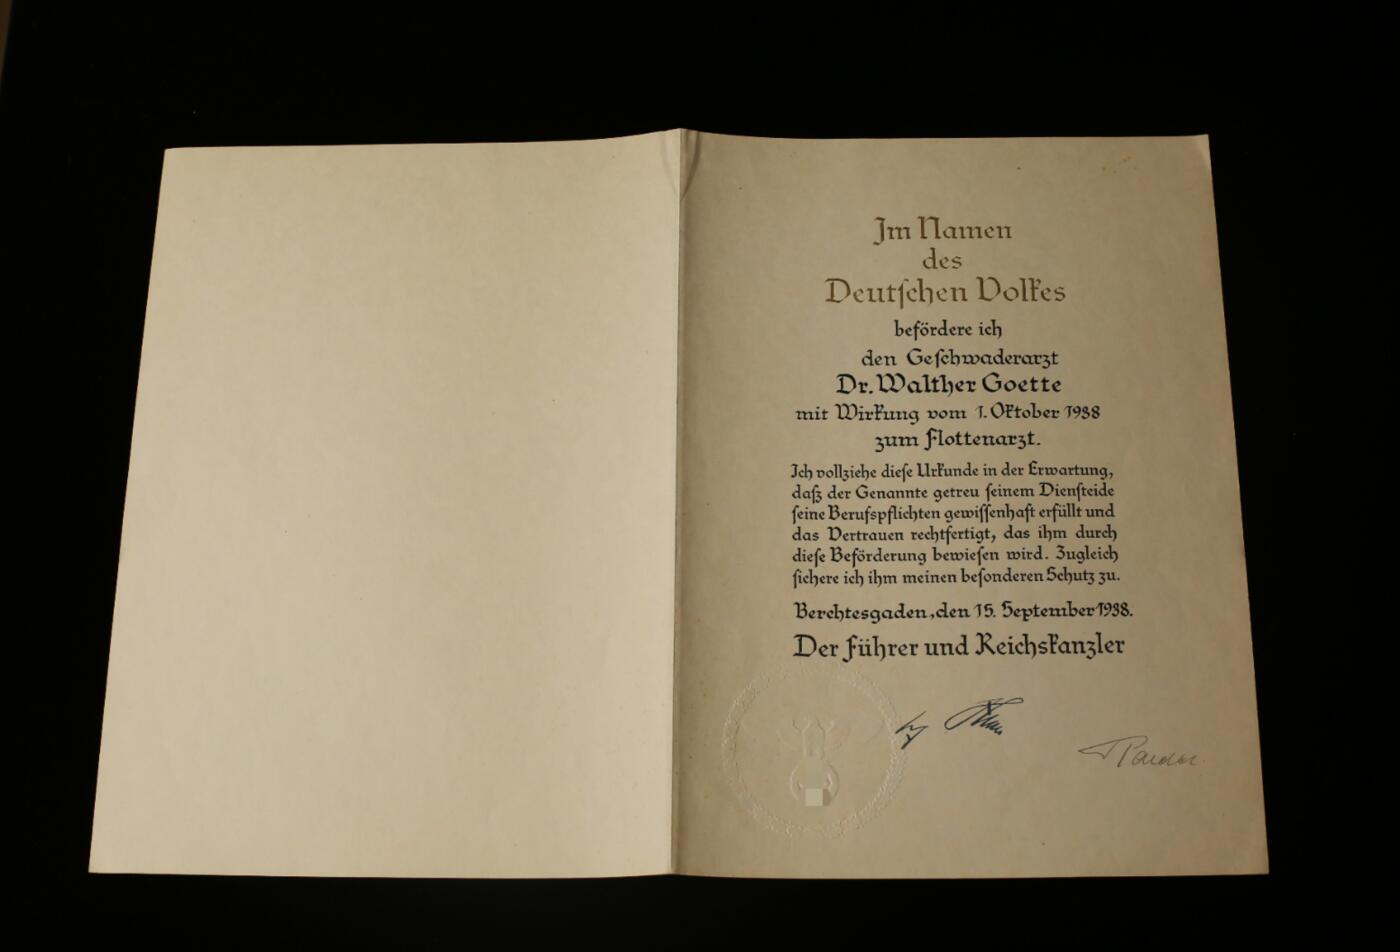 Im Namen
des
Deutschen Volkes
befördere ich
den Geschwaderarzt
Dr. Walther Goette
mit Wirkung vom 1. Oktober 1938
zum Flottenarzt.
Ich vollziehe diese Urkunde in der Erwartung,
daß der Genannte getreu seinem Diensteide
seine Berufspflichten gewissenhaft erfüllt und
das Vertrauen rechtfertigt, das ihm durch
diese Beförderung bewiesen wird. Zugleich
sichere ich ihm meinen besonderen Schutz zu.
Berchtesgaden, den 15. September 1938.
Der Führer und Reichskanzler
Raeder